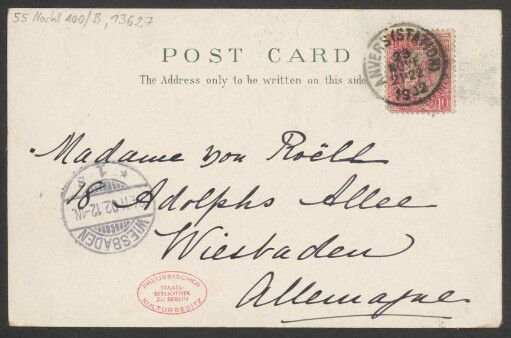 55 Nachl 100/B, 13627
POST CARD
The Address only to be written on this side
ANVERS (STATION)
1902
Madame von Roëll
18 Adolphs Allee
Wiesbaden
Allemagne
WIESBADEN
PREUSSISCHER
STAATS-
BIBLIOTHEK
ZU BERLIN
KULTURBESITZ